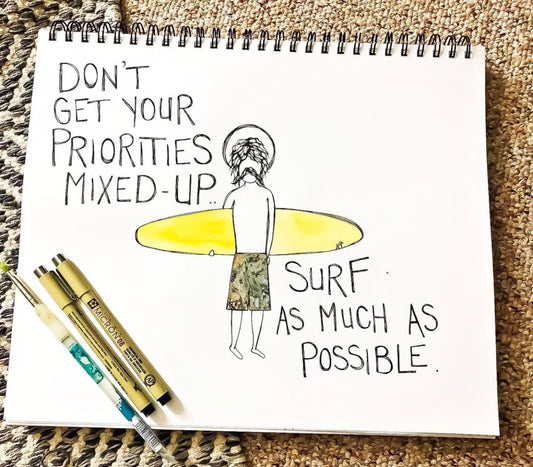 DON'T
GET YOUR
PRIORITIES
MIXED-UP..
SURF
AS MUCH AS
POSSIBLE.
MICRON